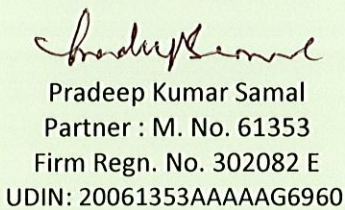 Pradeep Kumar Samal
Partner : M. No. 61353
Firm Regn. No. 302082 E
UDIN: 20061353AAAAAG6960